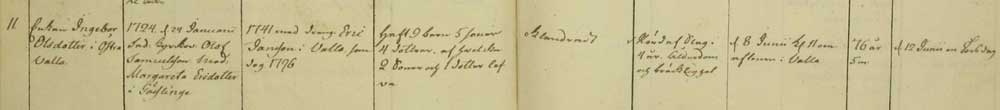 11
Enkan Ingebor
Olsdotter i Östra
Valla
1724. d 24 Januarii
Fad. Olof
Samuelsson Mod.
Margareta Ersdotter
i Gäslinge
1741 med dräng. Eric
Jansson i Valla, som
dog 1796
Haft 9 barn 5 söner
4 döttrar, af hvilka
2 Söner och 1 dotter lef
va
Slag.
4 år. Ålderdom
och bräcklighet
d 8 Junii kl 11 om
aftonen i Valla
76 år
5 m
d 12 Junii en